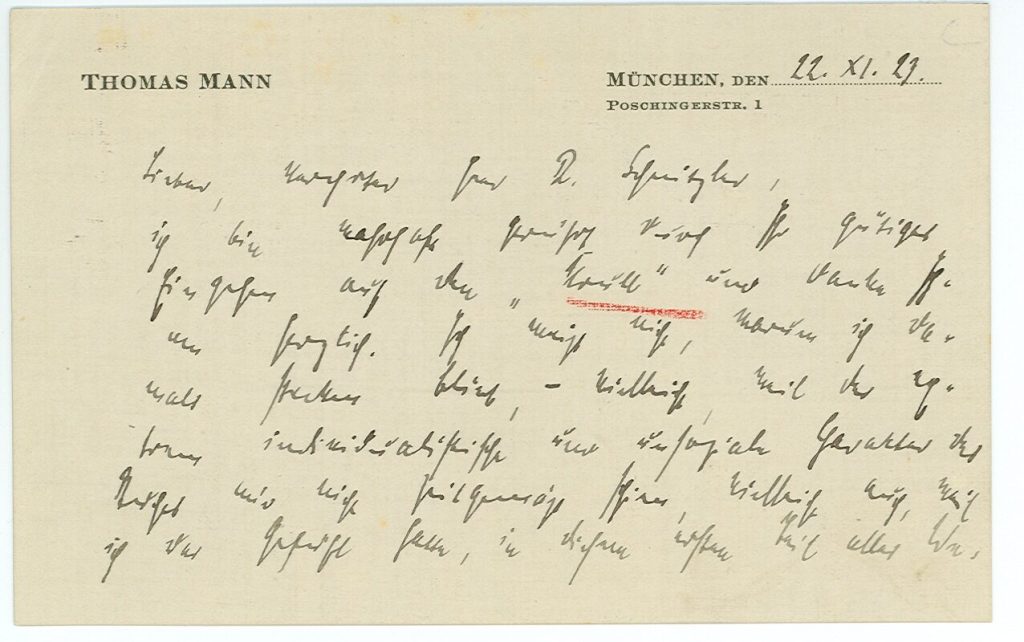 THOMAS MANN
MÜNCHEN, DEN 22. XI. 23.
POSCHINGERSTR. 1
Lieber, verehrter Herr Dr. Schnitzler,
ich bin wahrhaft gerührt durch Ihr gütiges
Eingehen auf den „Krull“ und danke Ih-
nen herzlich. Ich weiß nicht, warum ich da-
mals stecken blieb, – vielleicht, weil der ex-
trem individualistische und unsoziale Charakter des
Buches mir nicht zeitgemäß schien, vielleicht auch, weil
ich das Gefühl hatte, in diesem ersten Teil alles We-